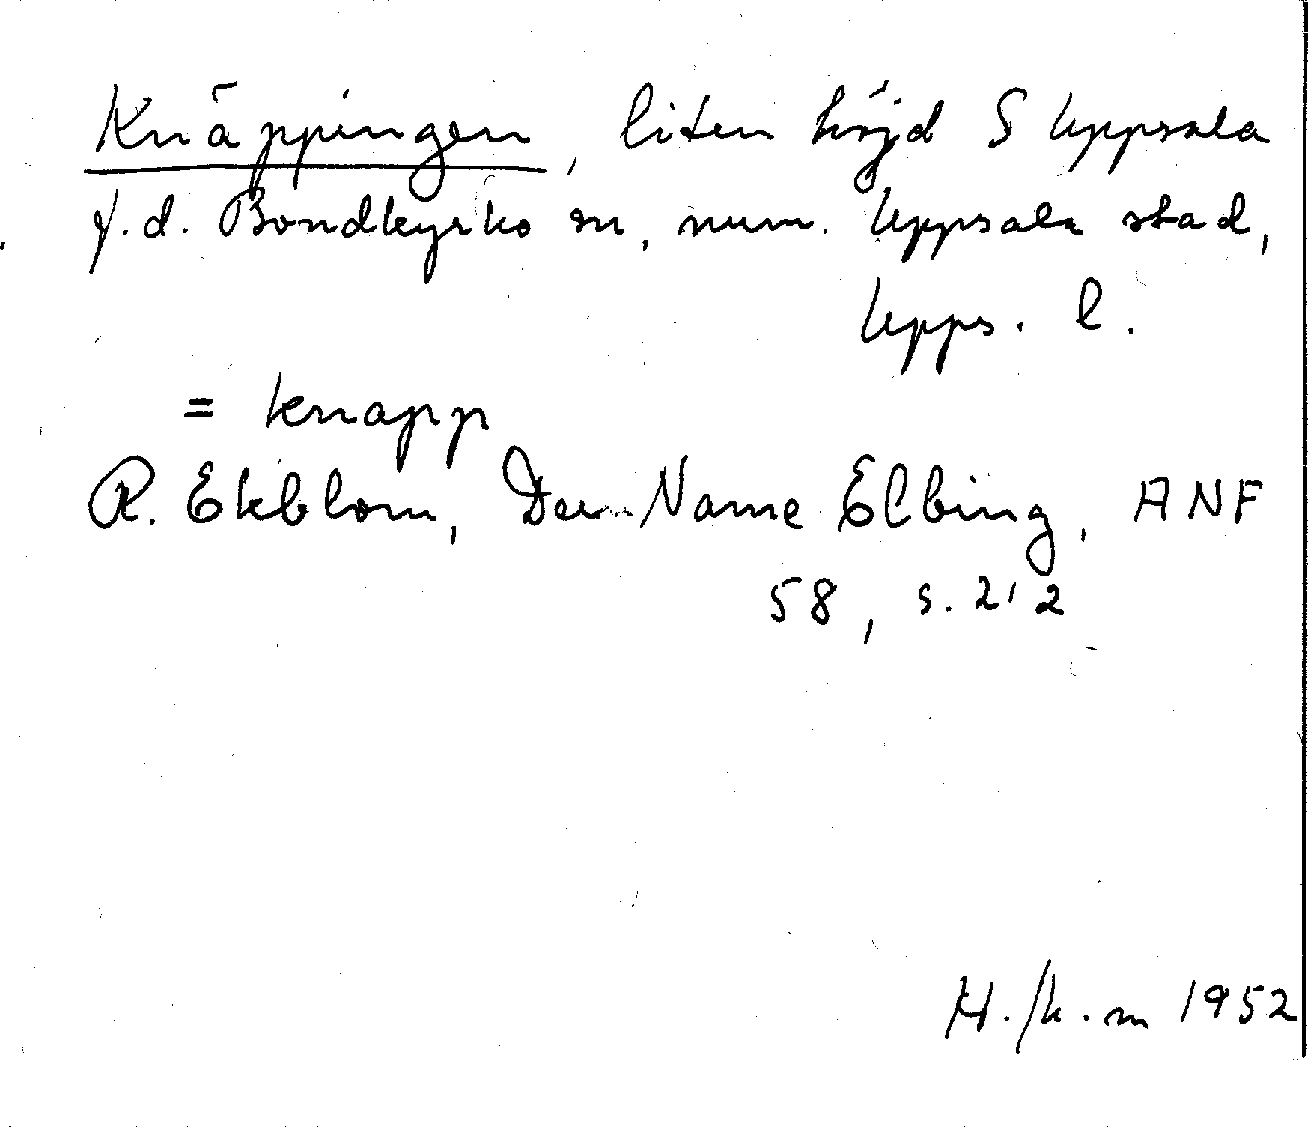 Knäppingen, liten höjd S Uppsala
f.d. Bondkyrko sn, num. Uppsala stad,
Upps. l.
= knapp
R. Ekblom, Der Name Elbing, ANF
58, s. 212
1952